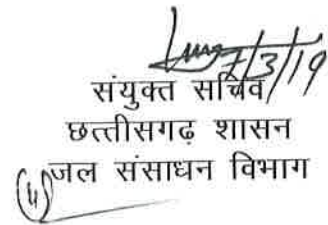 7/3/19
संयुक्त सचिव
छत्तीसगढ़ शासन
जल संसाधन विभाग
(4)